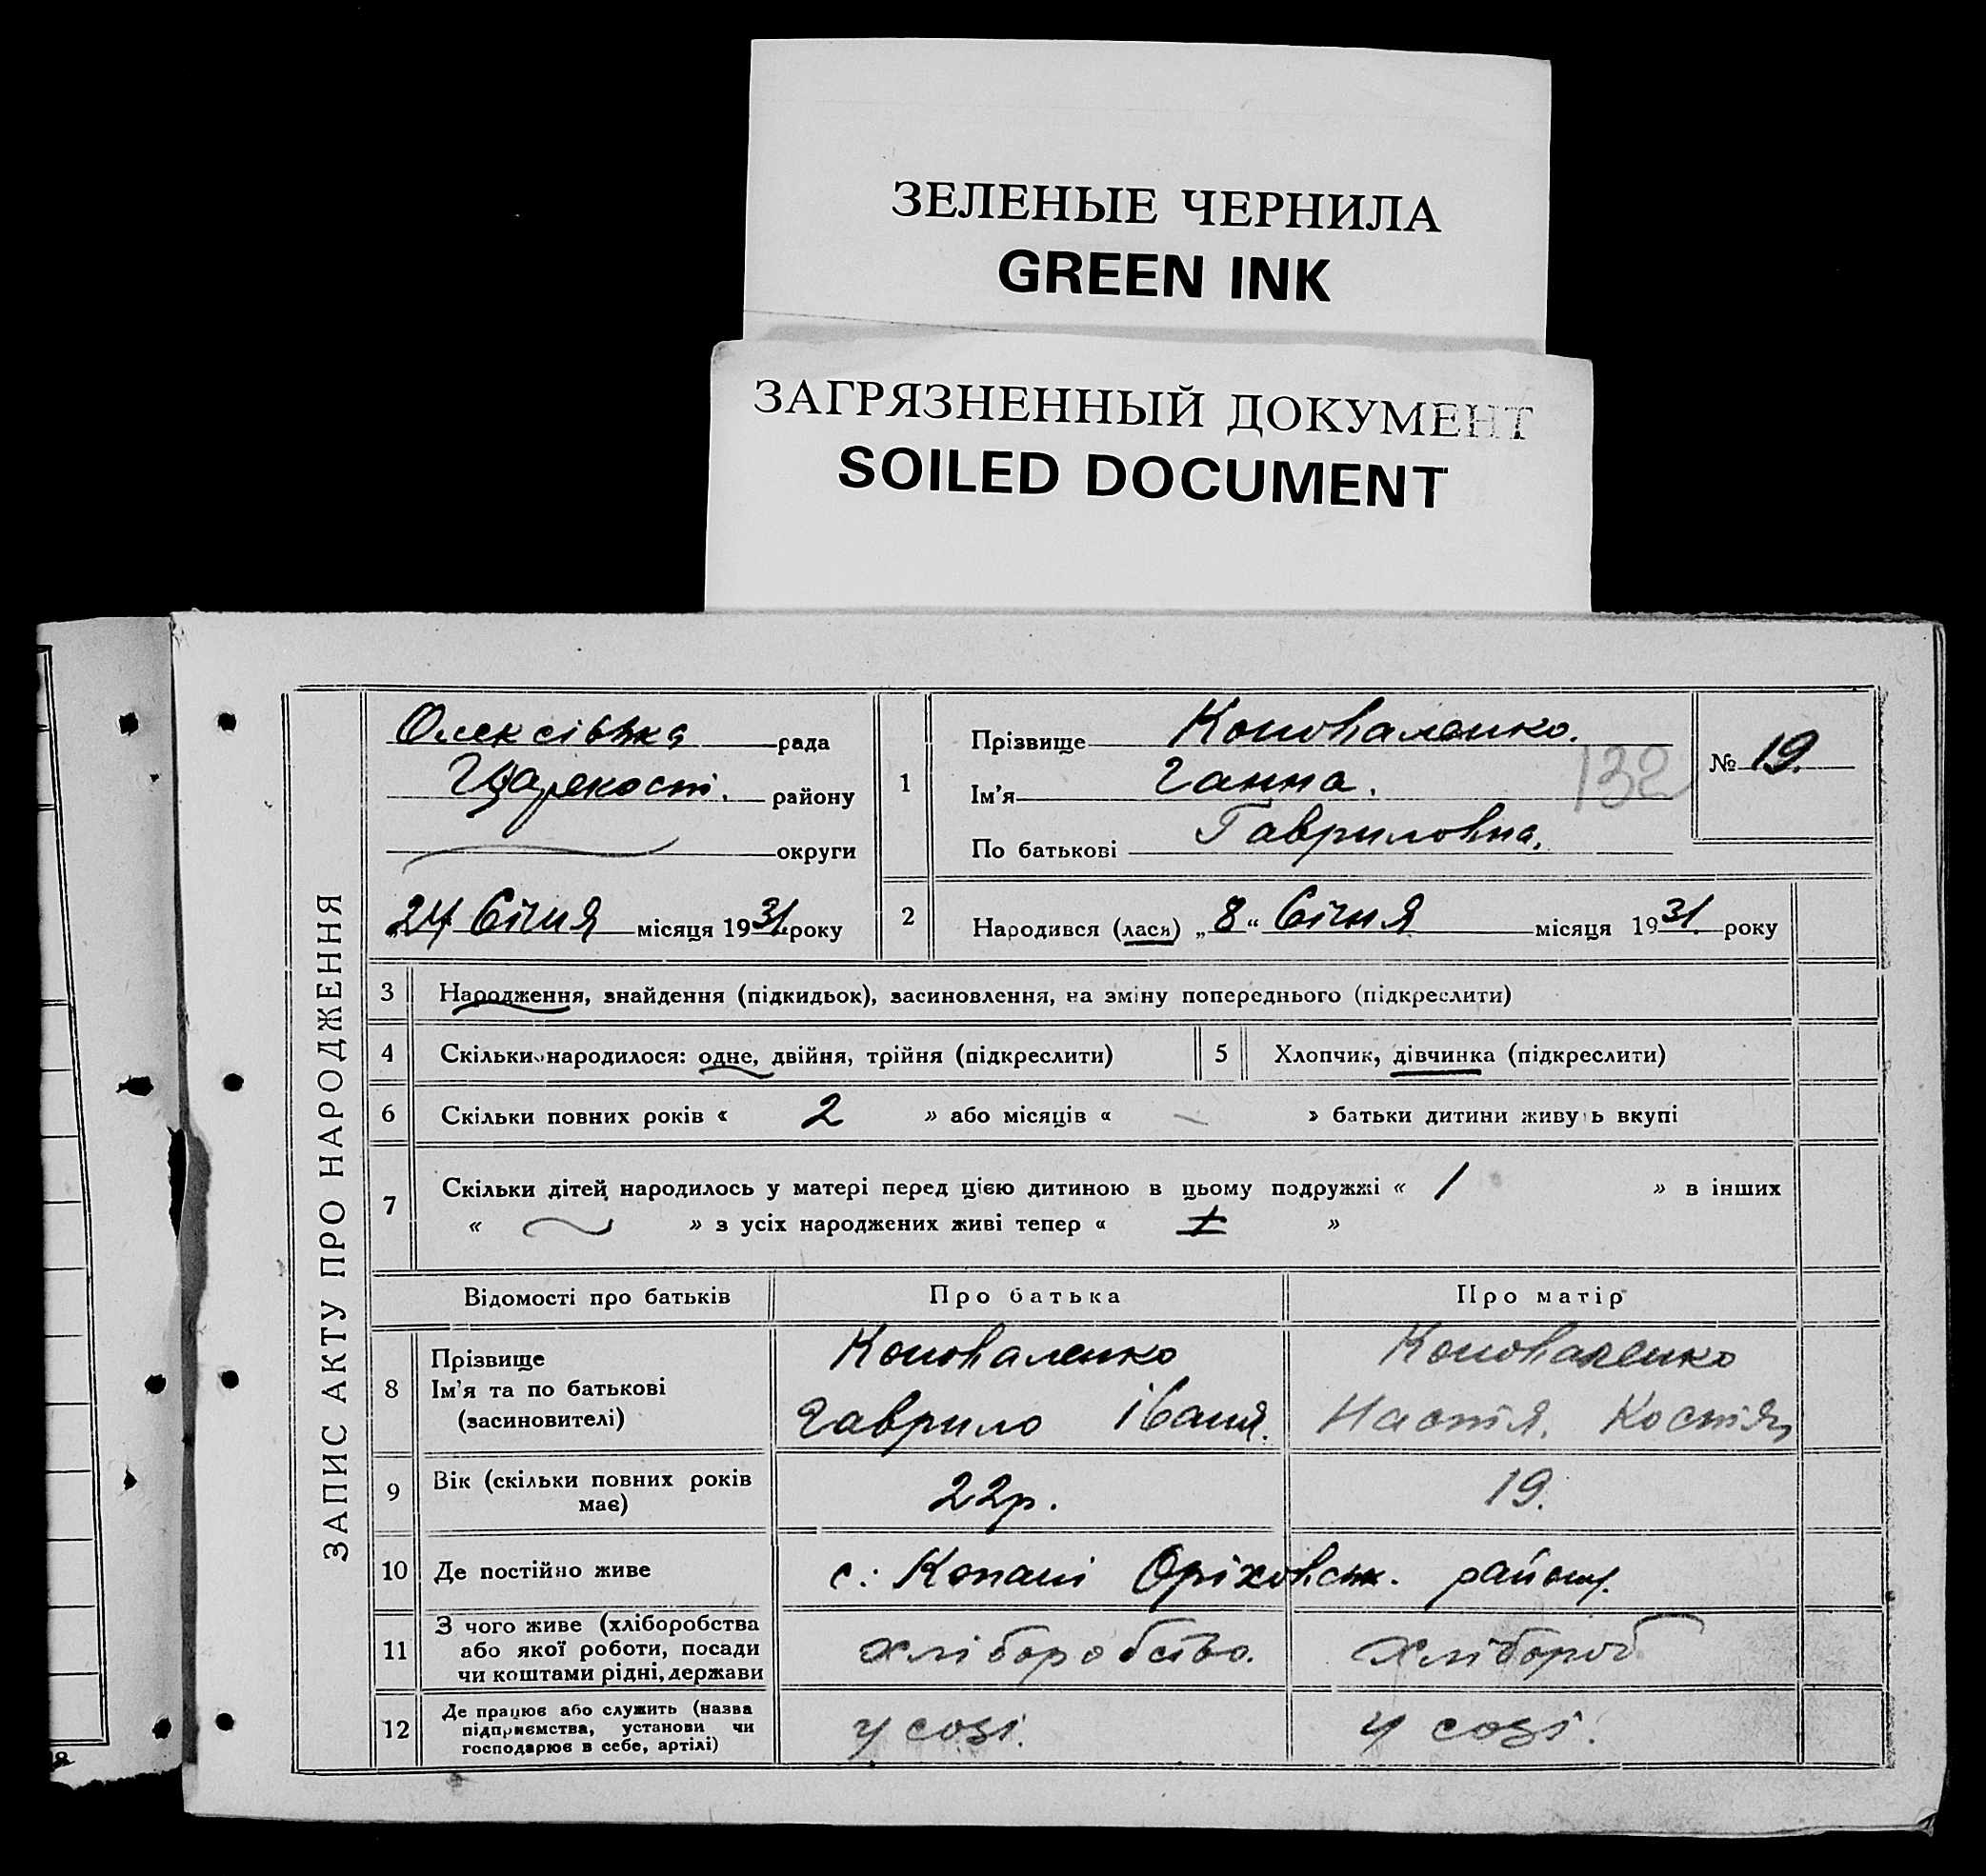 ЗЕЛЕНЫЕ ЧЕРНИЛА
GREEN INK
ЗАГРЯЗНЕННЫЙ ДОКУМЕНТ
SOILED DOCUMENT
ЗАПИС АКТУ ПРО НАРОДЖЕННЯ
Олексівка рада
району
округи
24 Січня місяця 1931 року
1
Прізвище Коноваленко.
Ім'я Ганна.
По батькові Гавриловна.
132
№ 19.
2 Народився (лася) „8“ Січня місяця 1931. року
3 Народження, знайдення (підкидьок), засиновлення, на зміну попереднього (підкреслити)
4 Скільки народилося: одне, двійня, трійня (підкреслити) 5 Хлопчик, дівчинка (підкреслити)
6 Скільки повних років « 2 » або місяців « — » батьки дитини живуть вкупі
7 Скільки дітей народилось у матері перед цією дитиною в цьому подружжі « 1 » в інших
« » з усіх народжених живі тепер « »
Відомості про батьків Про батька Про матір
8 Прізвище Коноваленко Коноваленко
Ім'я та по батькові Гаврило Іваня. Настя. Костян
(засиновителі)
9 Вік (скільки повних років має) 22р. 19.
10 Де постійно живе с. Копані Оріховськ. району.
11 З чого живе (хліборобства або якої роботи, посади чи коштами рідні, держави хліборобство. хлібороб
12 Де працює або служить (назва підприємства, установи чи господарює в себе, артілі) у созі. у созі.